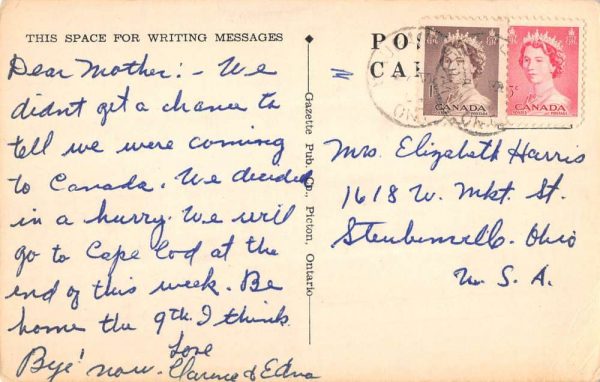 THIS SPACE FOR WRITING MESSAGES
Dear Mother:- We
didnt get a chance to
tell we were coming
to Canada. We decided
in a hurry. We will
go to Cape Cod at the
end of this week. Be
home the 9th. I think
Bye! now. Love
Clarence & Edna
Gazette Pub. Co., Picton, Ontario
PO
CA
CANADA
CANADA
Mrs. Elizabeth Harris
1618 W. Mkt. St.
Steubenville. Ohio
U. S. A.